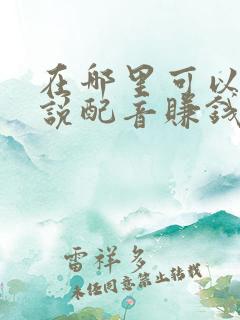 在哪里可以
說配音賺錢
雷祥多
未经同意禁止转载